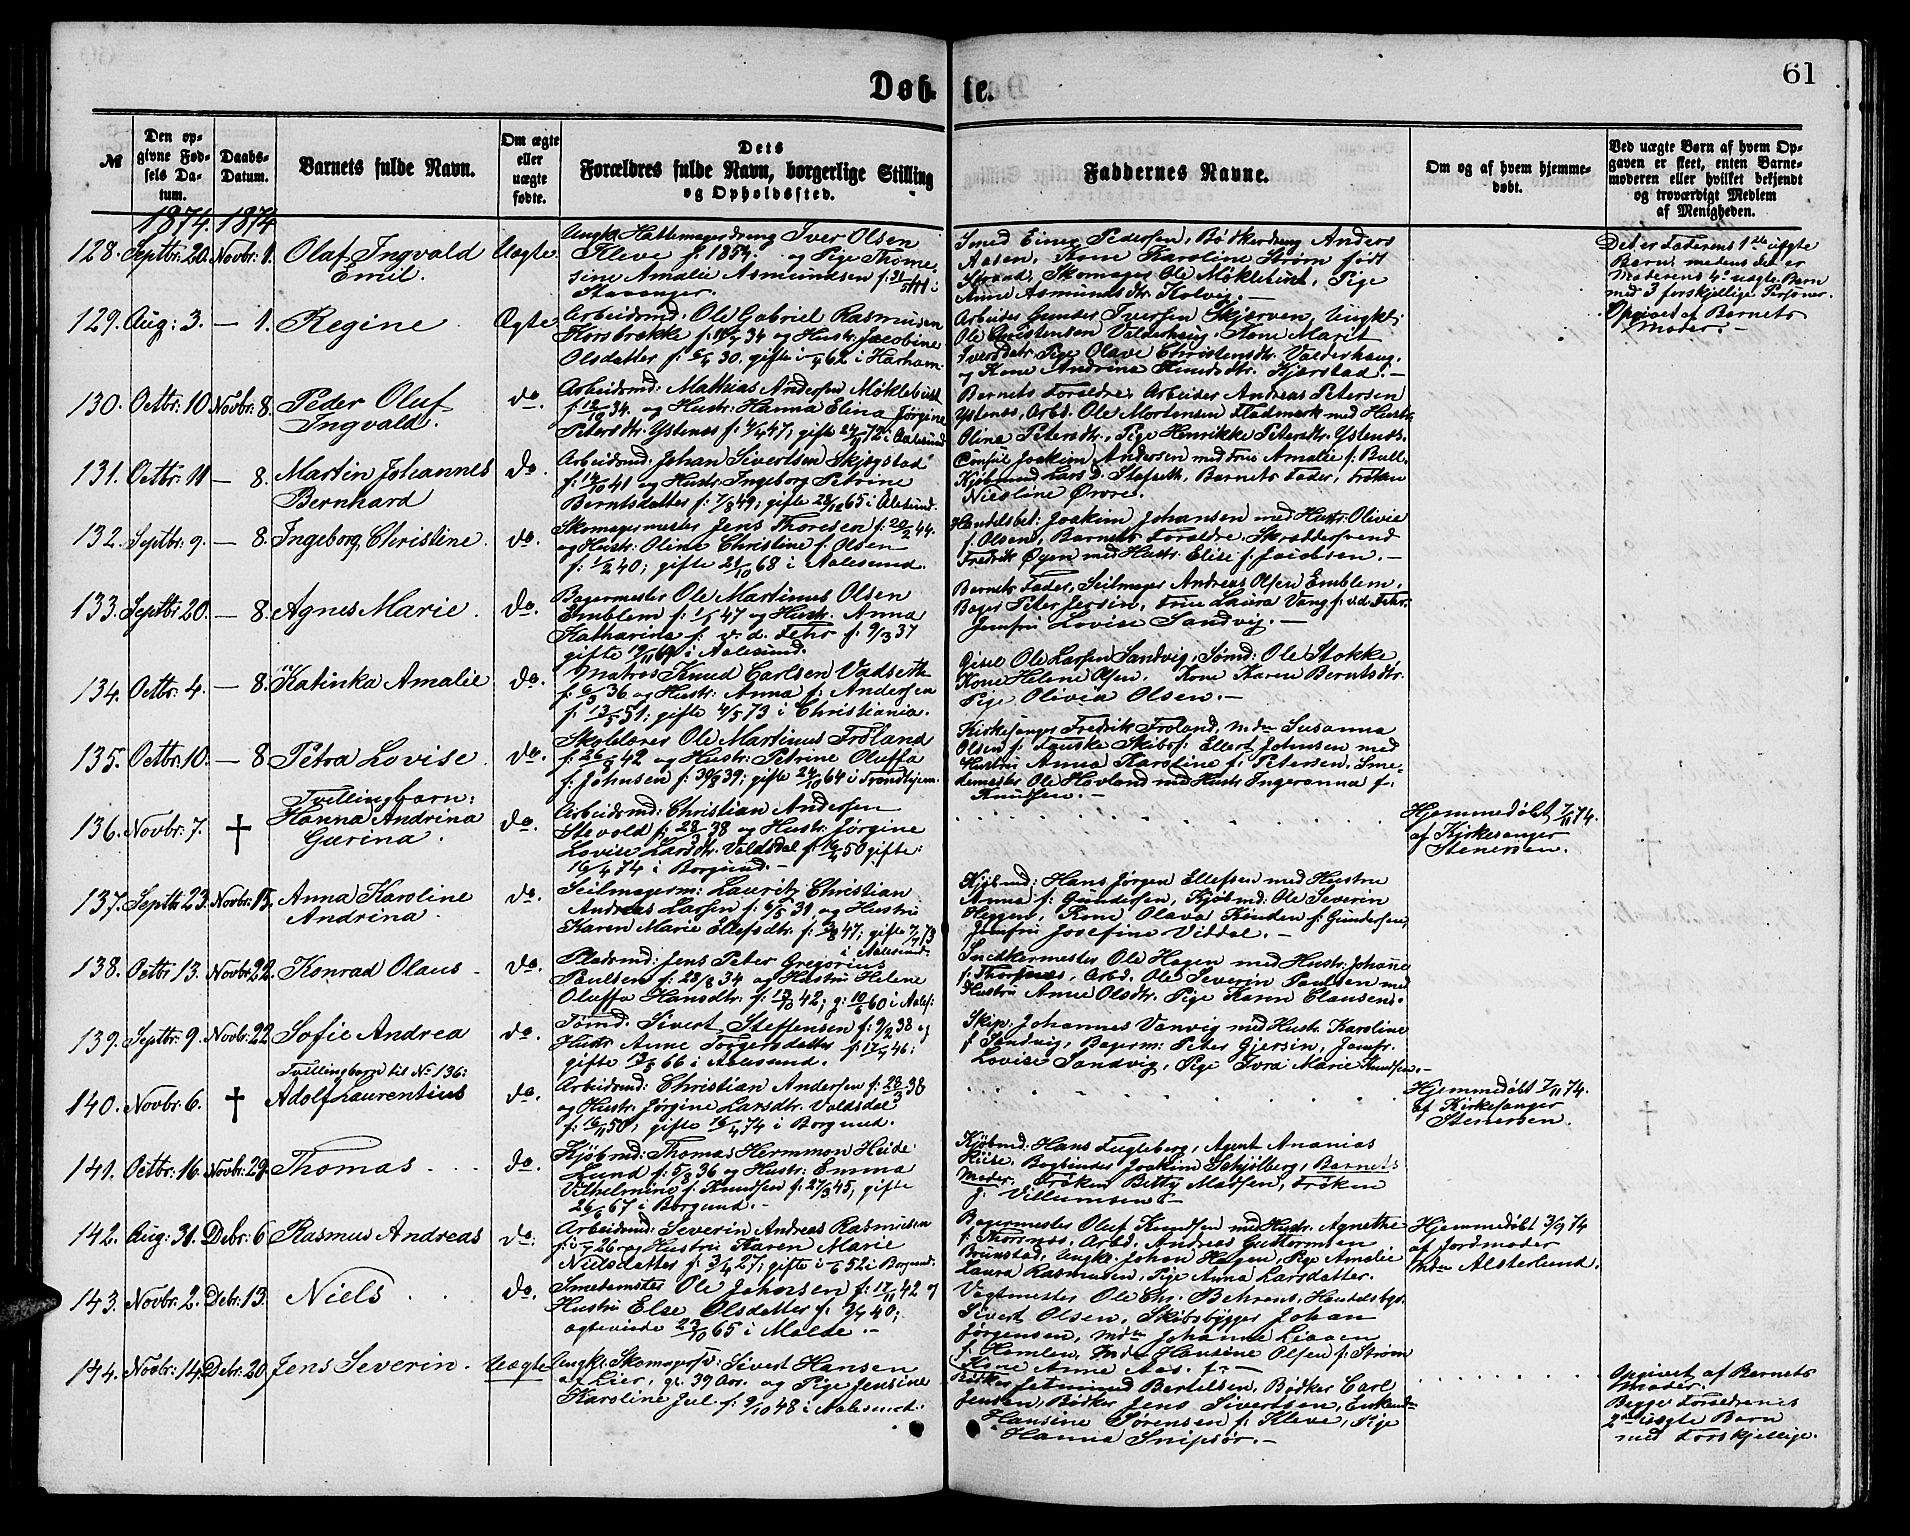 Døbte.
61
№
Den opgivne Fødsels Datum.
Daabs-Datum.
Barnets fulde Navn.
Om ægte eller uægte fødte.
Dets Forældres fulde Navn, borgerlige Stilling og Opholdssted.
Faddernes Navne.
Om og af hvem hjemmedøbt.
Ved uægte Børn af hvem Opgaven er skeet, enten Barnemoderen eller hvilket bekjendt og troværdigt Medlem af Menigheden.
1874. 1874
128. Septbr: 20. Novbr: 1. Olaf Ingvald Emil. Uægte.
Ungk. Hattemagerdreng Iver Olsen
Kleve f. 1854. og Pige Thomesine Amalie Asmundsen
Stavanger.
Smed Einer Pedersen, Bødkerdreng Anders
Aasen, Kone Karoline Strøm født
Straad, Skomager Ole Møklebust, Pige
Anne Asmundsdtr. Kolvig.
Det er Faderens 1ste uægte
Barn, medens det er
Moderens 4de uægte Barn
med 3 forskjellige Personer.
Opgivet af Barnets
Moder.
129. Aug: 3. — 1. Regine. Ægte
Arbeidsmd: Ole Gabriel Rasmusen
Korsbrække og Hustr: Jacobine
Olsdatter gifte i Harham.
Arbeider Gunder Iversen Skjerven, Ungkl:
Ole Christensen Valderhaug, Kone Marit
Iversdtr. Pige Olave Christensdtr. Valderhaug.
og Kone Andrine Knudsdtr. Kjærstad.
130. Octbr: 10 Novbr: 8. Peder Oluf Ingvald. do.
Arbeidsmd: Mathias Andersen Møklebust
f. 12/10 34. og Hustr: Hanna Elina Jørgine
Petersdtr. Ystenes gifte i Aalesund
Barnets Forældre, Arbeider Andreas Petersen
Ystenes, Arbd. Ole Mortensen Flademark med Hustr.
Olina Petersdtr., Pige Henrikke Petersdtr. Ystenes.
131. Octbr: 11 — 8. Martin Johannes Bernhard do.
Arbeidsmd: Johan Sivertsen Skjegstad
og Hustr: Ingeborg Petrine
Berntsdatter gifte 28/12 65 i Aalesund.
Consul Joakim Andersen med Frue Amalie f: Bull.
Kjøbmand Lars D. Stafseth, Barnets Fader, Frøken
Nicoline Ørvre.
132. Septbr: 9. — 8. Ingeborg Christine. do.
Skomagermester Jens Thoresen f: 20/2 44.
og Hustr: Oline Christine f: Olsen
f: 1/2 40; gifte 21/10 68 i Aalesund.
Handelsbet: Joakim Johansen med Hustr: Olivie
f. Olsen, Barnets Forældre, Skræddersvend
Fredrik Øyen med Hustr: Elise f: Jacobsen.
133. Septbr: 20. — 8. Agnes Marie. do.
Bagermester Ole Martinus Olsen
Emblem f: 1/5 47 og Hustr: Anna
Katharina f: v. d. Fehr f: 9/3 37
gifte i Aalesund.
Barnets Fader, Seilmager Andreas Olsen Emblem,
Bager Peter Jersin, Frue Laura Vang f: v. d. Fehr.
Jomfru Lovise Sandvig.
134. Octbr: 4. — 8. Katinka Amalie do.
Matros Knud Carlsen Vadseth
f: 6/3 36 og Hustr: Anna f: Andersen
f: 13/5 51; gifte 4/5 73 i Christiania.
Gisel Ole Larsen Sandvig, Tømd: Ole Stokke
Kone Helene Olsen, Kone Karen Berntsdtr.
Pige Olivia Olsen.
135. Octbr: 10. — 8 Petra Lovise. do.
Skolelærer Ole Martinus Frøland
f: 26/5 42 og Hustr: Petrine Oluffa
f: Johnsen f: 30/8 39; gifte 24/11 64 i Trondhjem.
Kirkesanger Fredrik Froland, Mdm Susanna
Olsen f: Fauske Skibsf: Ellert Johnsen med
Hustru Anna Karoline f: Petersen, Smedemester Ole Hovland med Hustr: Ingeranna f:
Knudsen.
136. Novbr: 7. † Tvillingbarn: Hanna Andrina Gurina. do.
Arbeidsmd: Christian Andersen
Stevold f: 28/3 38 og Hustr: Jørgine
Lovise Larsdtr. Valdsdal f: 16/11 50 gifte:
16/4 74 i Borgund.
Hjemmedøbt 7/11 74.
af Kirkesanger
Stenersen.
†
137. Septbr: 23. Novbr: 15. Anna Karoline Andrina. do.
Seilmagerm: Lauritz Christian
Andreas Larsen f: 6/5 31, og Hustru
Karen Marie Ellefsdtr. gifte 7/7 73
i Aalesund.
Kjøbmd: Hans Jørgen Ellefsen med Hustru
Anna f: Gundersen, Kjøbmd: Ole Severin
Heggen, Kone Olava Knuden f: Gundersen,
Jomfru Josefine Viddal.
138. Octbr 13. Novbr: 22. Konrad Olaus do.
Pladsmd: Jens Peter Gregorius
Paulsen f: 28/8 34 og Hustru Helene
Oluffa Hansdtr. f: 13/10 42; g: 10/6 60 i Aales:
Snedkermester Ole Hagen med Hustr: Johanne
f: Thorsnes, Arbd. Ole Severin Paulsen med
Hustru Anne Olsdtr. Pige Karen Clausen.
139. Septbr: 9. Novbr: 22 Sofie Andrea do.
Tømd. Sivert Steffensen f: 9/2 38 og
Hustr Anne Torgersdatter
gifte 13/5 66 i Aalesund.
Skip: Johannes Vanvig med Hustr. Karoline
f Sandvig, Bagerm: Peter Gjersin, Jomfr.
Lovise Sandvig, Pige Ivra Marie Knudsen.
140. Novbr: 6. † Tvillingbarn til No 136: Adolf Laurentius do.
Arbeidsmd: Christian Andersen f: 28/3 38
og Hustr: Jørgine Larsdtr. Valdsdal
f: 16/11 50, gifte 16/4 74 i Borgund.
Hjemmedøbt 7/11 74.
af Kirkesanger
Stenersen.
†
141. Octbr: 16. Novbr: 29. Thomas. do.
Kjøbmd: Thomas Hermmon Heide
Lund f: 5/8 36 og Hustr: Emma
Vilhelmine f: Knudsen f: 27/3 45, gifte
26/6 67 i Borgund.
Kjøbmd. Hans Fugleberg, Agent Ananias
Riise. Bogbinder Joakim Schjølberg, Barnets
Moder, Frøken Betty Madsen, Frøken
J. Villumsen
142. Aug: 31. Debr: 6 Rasmus Andreas do:
Arbeidsmd: Severin Andreas Rasmusen
og Hustru Karen Marie
Nielsdatter gifte i Borgund.
Bagermester Oluf Knudsen med Hustr. Agnethe
f: Thorsnes, Arbd. Andreas Guttormsen
Brunstad, Ungk. Johan Hagen, Pige Amalie
Laura Rasmusen, Pige Anna Larsdatter.
Hjemmedøbt 3/9 74
af Jordmoder
Mdm Alsterlund.
143. Novbr: 2. Debr: 13. Niels do.
Smedemster Ole Johnsen f: 17/11 42 og
Hustru Else Olsdatter
ægteviede 23/10 65 i Molde.
Vagtmester Ole Chr. Behrens, Handelsbgr.
Sivert Olsen, Skibsbygger Johan
Jørgensen, Mdm Johanne Liaaen
f: Hamlen, Mdm Hansine Olsen f: Strøm
Kone Anna Aas.
144. Novbr: 14. Debr: 20. Jens Severin. Uægte
Ungk: Skomagersv: Sivert Hansen
af Lier, g: 39 Aar. og Pige Jensine
Karoline Jul. f: 9/10 48 i Aalesund.
Bertelsen, Bødker Carl
Jensen, Bødker Jens Sivertsen, Enkemdm
Hansine Sørensen f: Kleve, Pige
Hanna Snipsør.
Opgivet af Barnets
Moder.
Begge Forældrenes
2det uægte Barn
med Forskjellige.